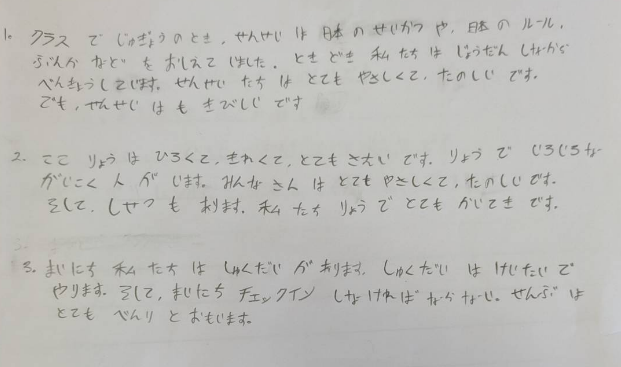 1. クラス で じゅぎょうのとき、せんせい は 日本 の せいかつ や、日本 の ルール、
ぶんか など を おしえて いました。ときどき 私 たち は じょうだん しながら
べんきょうしています。せんせい たち は とても やさしくて、たのしい です。
でも、せんせい は も きびしい です
2. ここ りょう は ひろくて、きれくて、とても です。りょう で いろいろな
がいこく人 が います。みんな さん は とても やさしくて、たのしい です。
そして、しせつ も あります。私 たち りょう で とても かいてき です。
3. まいにち 私 たち は しゅくだい が あります。しゅくだい は けいたい で
やります。そして、まいにち チェックイン しなければ ならない。せんぶ は
とても べんり と おもいます。